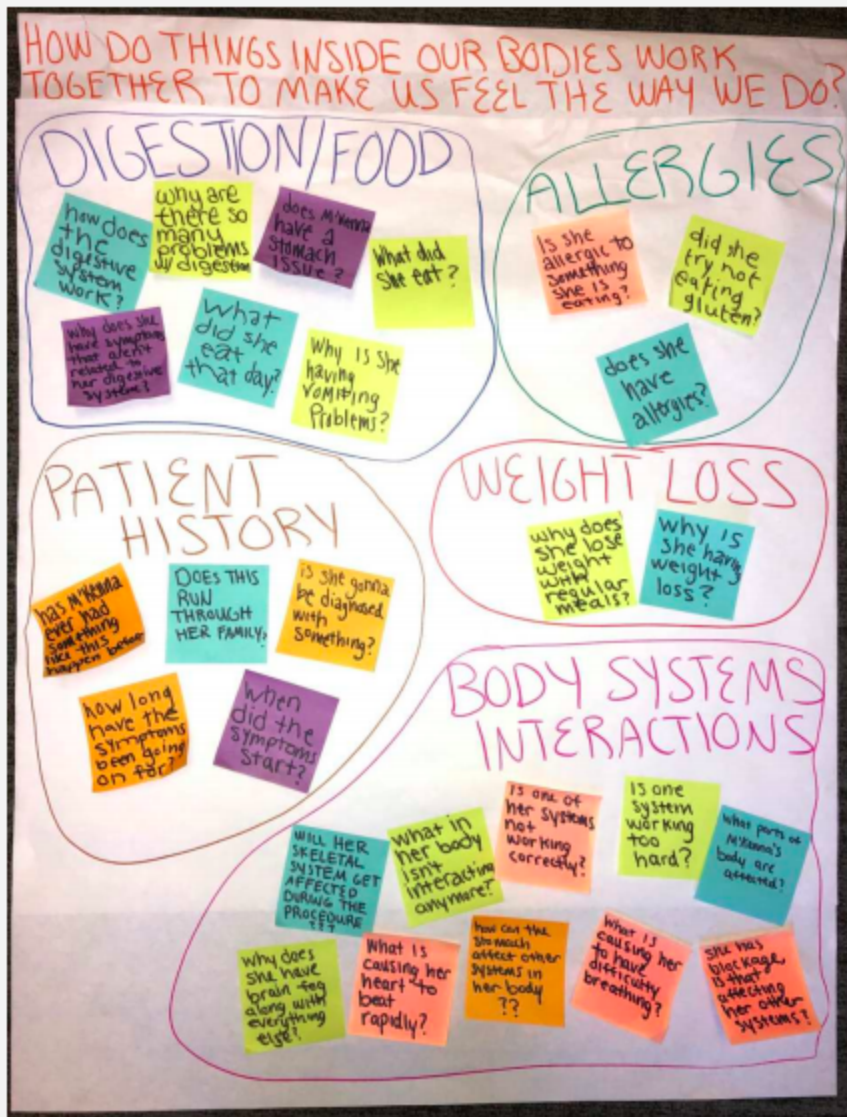 HOW DO THINGS INSIDE OUR BODIES WORK
TOGETHER TO MAKE US FEEL THE WAY WE DO?
DIGESTION/FOOD
how does
the
digestive
system
work?
why are
there so
many
problems
w/ digestion
does M'Kenna
have a
stomach
issue?
What did
she eat?
why does she
have symptoms
that aren't
related to
her digestive
system?
what
did she
eat
that day?
Why is she
having
vomiting
Problems?
ALLERGIES
Is she
allergic to
something
she is
eating?
did she
try not
eating
gluten?
does she
have
allergies?
PATIENT
HISTORY
has M'Kenna
ever had
something
like this
happen before
DOES THIS
RUN
THROUGH
HER FAMILY?
is she gonna
be diagnosed
with
something?
how long
have the
symptoms
been going
on for?
when
did the
symptoms
start?
WEIGHT LOSS
why does
she lose
weight
with
regular
meals?
why is
she having
weight
loss?
BODY SYSTEMS
INTERACTIONS
WILL HER
SKELETAL
SYSTEM GET
AFFECTED
DURING THE
PROCEDURE
???
what in
her body
isn't
interacting
anymore?
Is one of
her systems
not
working
correctly?
Is one
system
working
too
hard?
what parts of
M'Kenna's
body are
affected?
why does
she have
brain fog
along with
everything
else?
What is
causing her
heart to
beat
rapidly?
how can the
stomach
affect other
systems in
her body
??
What is
causing her
to have
difficulty
breathing?
she has
blockage
is that
affecting
her other
systems?